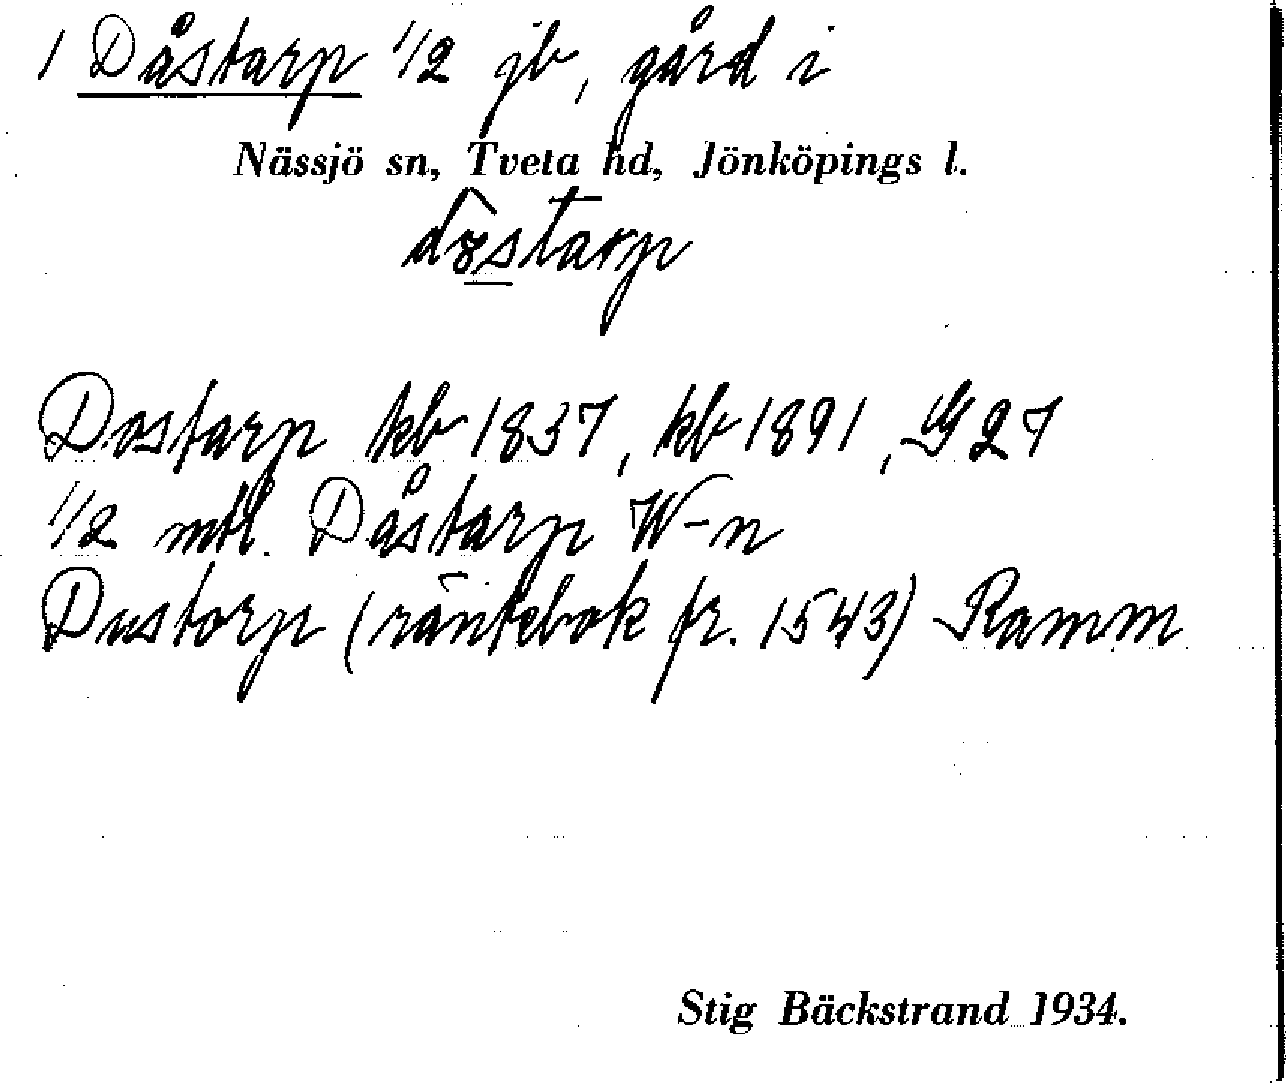 1 Dåstarp 1/2 jb, gård i
Nässjö sn, Tveta hd, Jönköpings l.
Dostarp kb 1837, kb 1891, G 27
1/2 mtl. Dåstarp W-n
Dustorp (räntebok fr. 1543) Ramm
Stig Bäckstrand 1934.